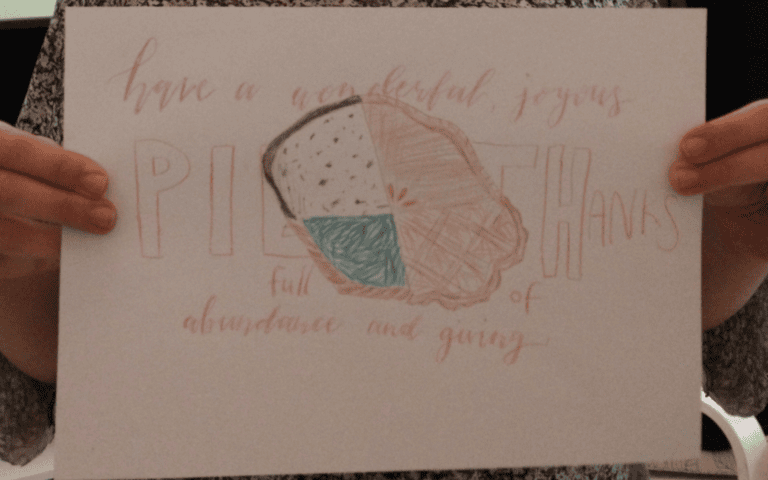 have a wonderful, joyous
PIE THANKS
full of
abundance and giving